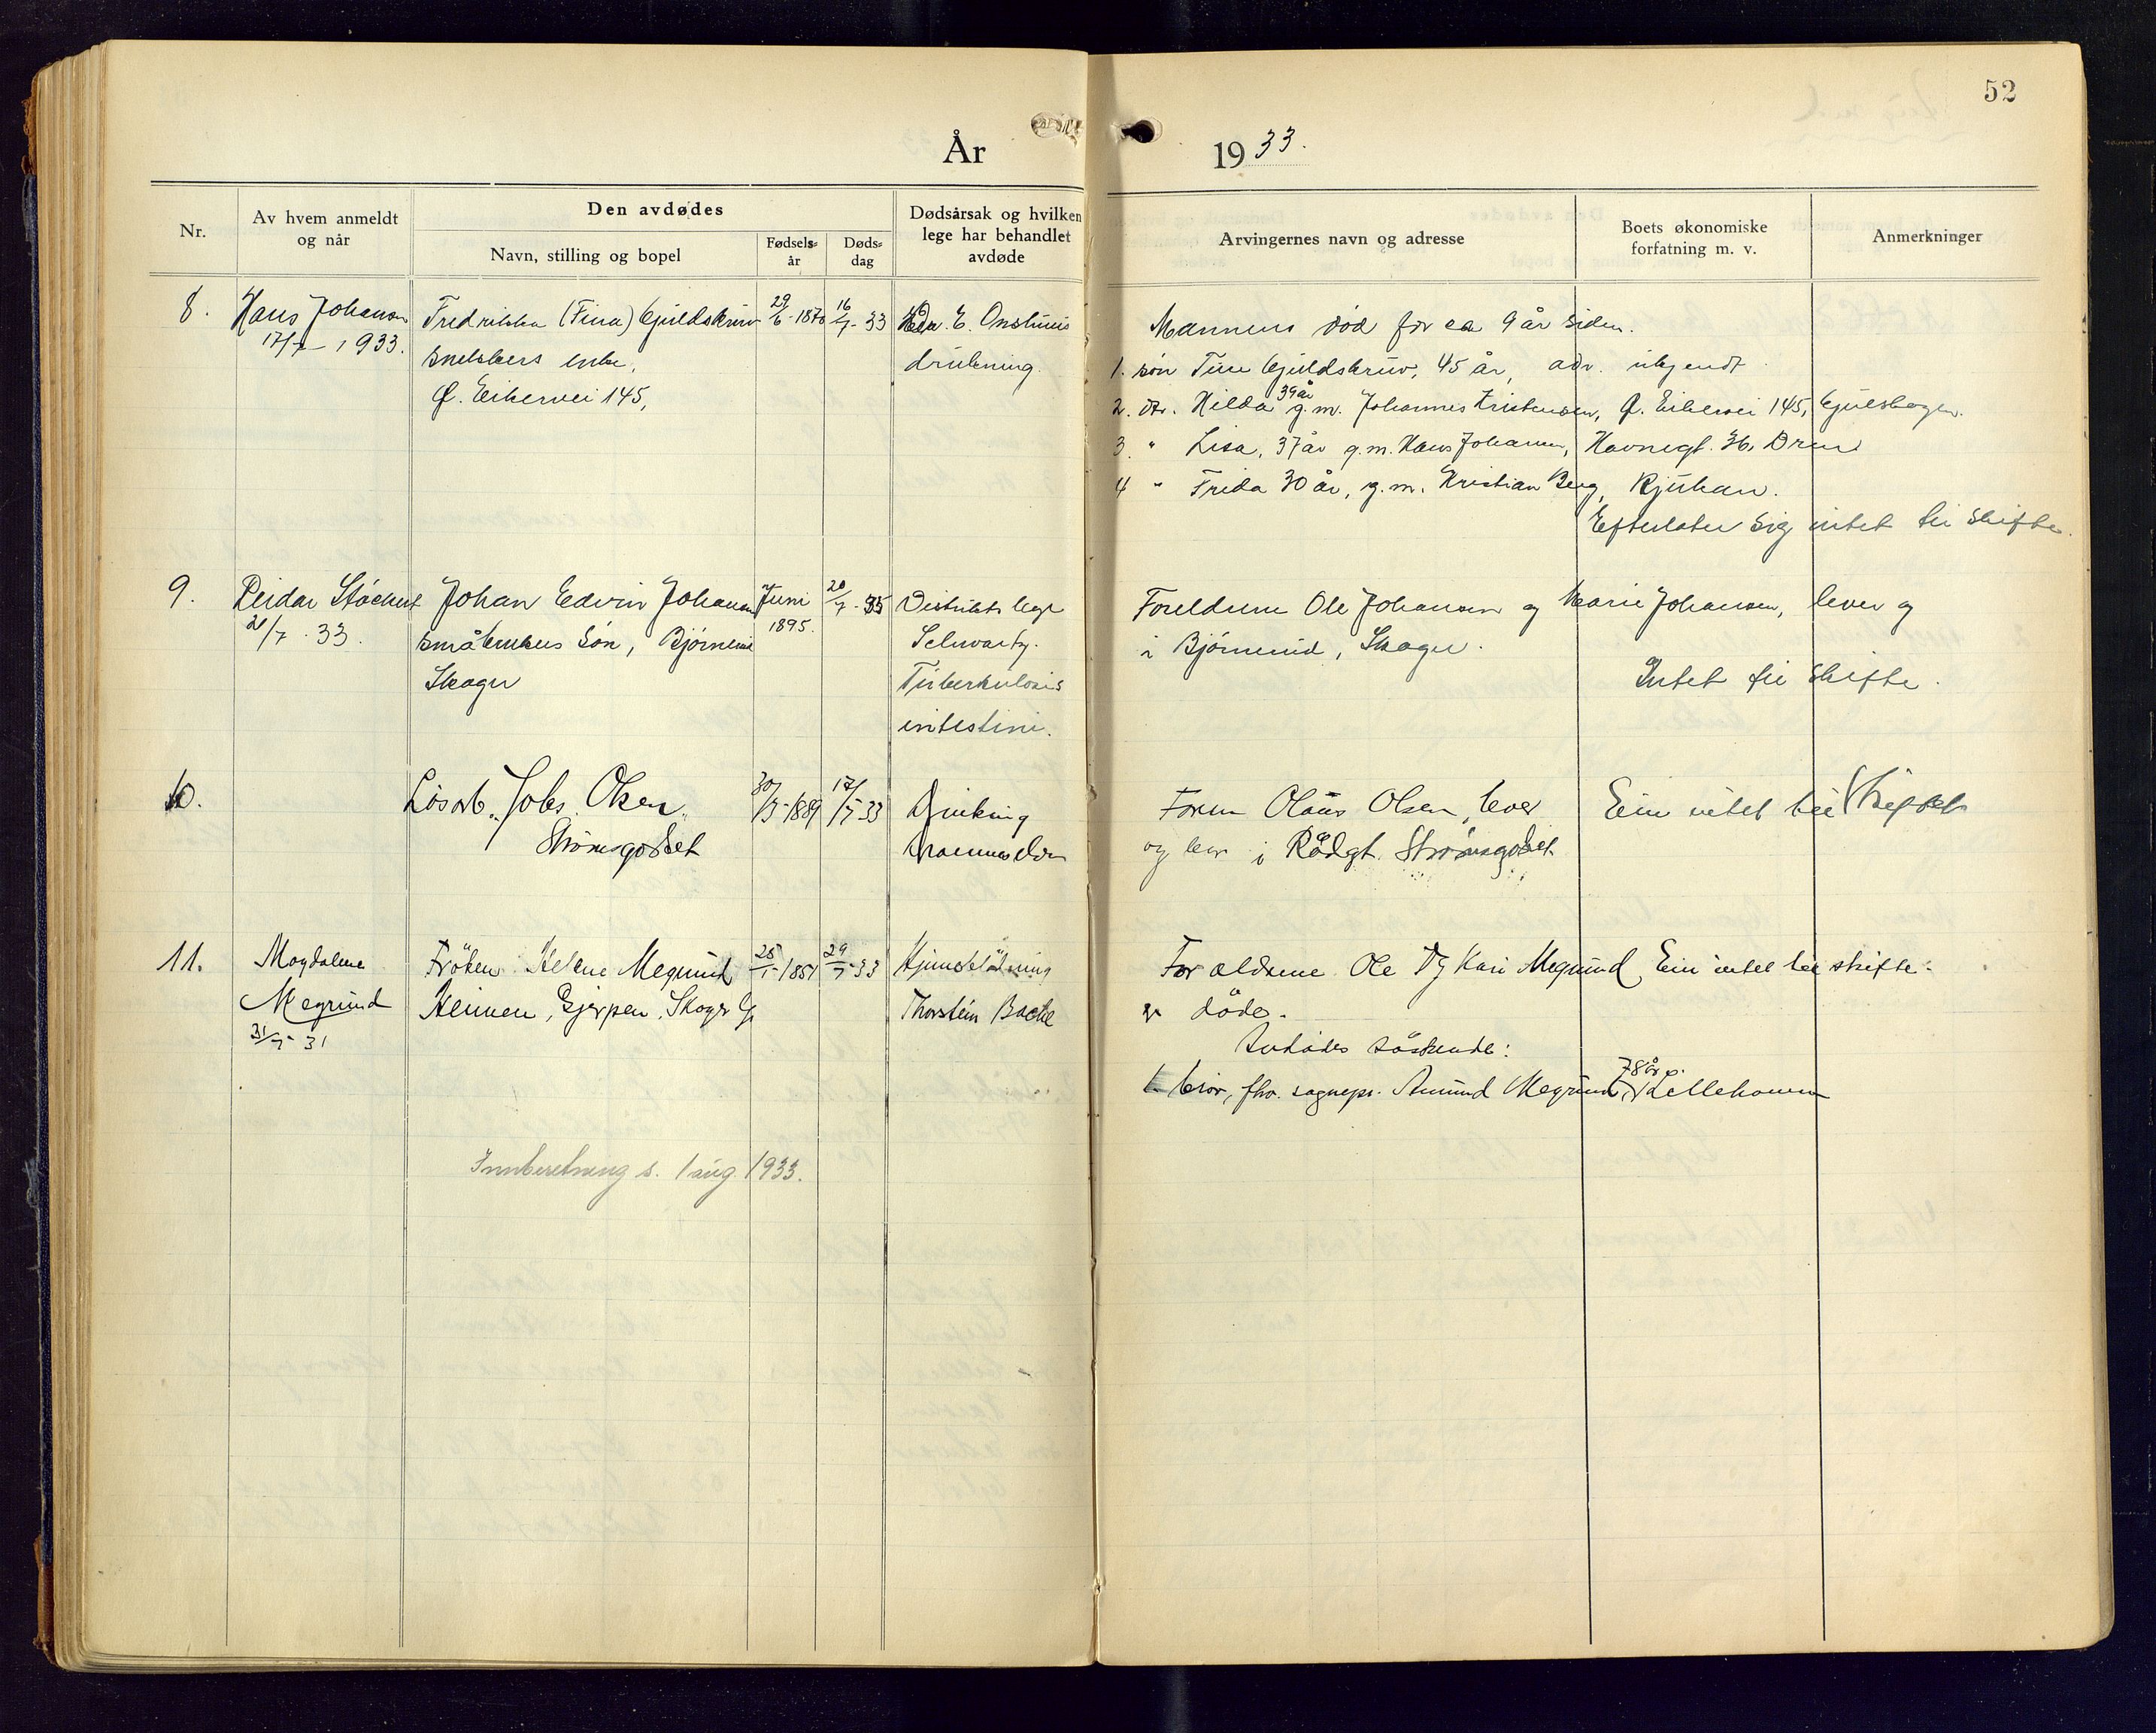 52
År 1933.
Nr.
Av hvem anmeldt og når
Den avdødes
Navn, stilling og bopel
Fødselsår
Dødsdag
Dødsårsak og hvilken lege har behandlet avdøde
Arvingernes navn og adresse
Boets økonomiske forfatning m. v.
Anmerkninger
8. Hans Johansen Fredrikka (Fina) 29/6-1870 16/7-33 E.
17/7 1933. enke, drukning.
Ø. Eikervei 145,
Mannens død for ca 9 år siden.
1. søn Tine 45 år, adr. ukjendt.
2. dtr. Hilda 39 år g.m. Johannes Kristensen, Ø. Eikervei 145,
3. " Lisa, 37 år g.m. Hans Johansen, Havnegt. 36, Drm
4 " Frida 30 år, g.m. Kristian Berg, Rjukan.
Efterlater sig intet til skifte.
9. Reidar Johan Edvin Johansen Juni 1895. 20/7-33 Distriktslege
21/7. 33. småbrukers søn, Schwartz.
Skoger Tuberkulosis
intestini.
Foreldrene Ole Johansen og Marie Johansen, lever og
i Skoger.
Intet til skifte.
10. Løsarb. Johs. Olsen 30/3-1889 17/7-33 Drukning
Strømsgodset Drammenselven
Faren Olaus Olsen, lever Ein intet til skifte
og bor i Rådgt. Strømsgodset
11. Magdalene Frøken Helene Megrund 28/1-1851 29/7-33 Hjerneblødning
Megrund Heimen, Gjerpen, Skoger Thorstein Bache
31/7 31
Forældrene Ole og Kari Megrund Ein intet til skifte.
er døde.
Avdødes søskende:
1. bror, fhv. sognepr. Amund Megrund, 78 år, Lillehammer
Innberetning s. 1 aug. 1933.